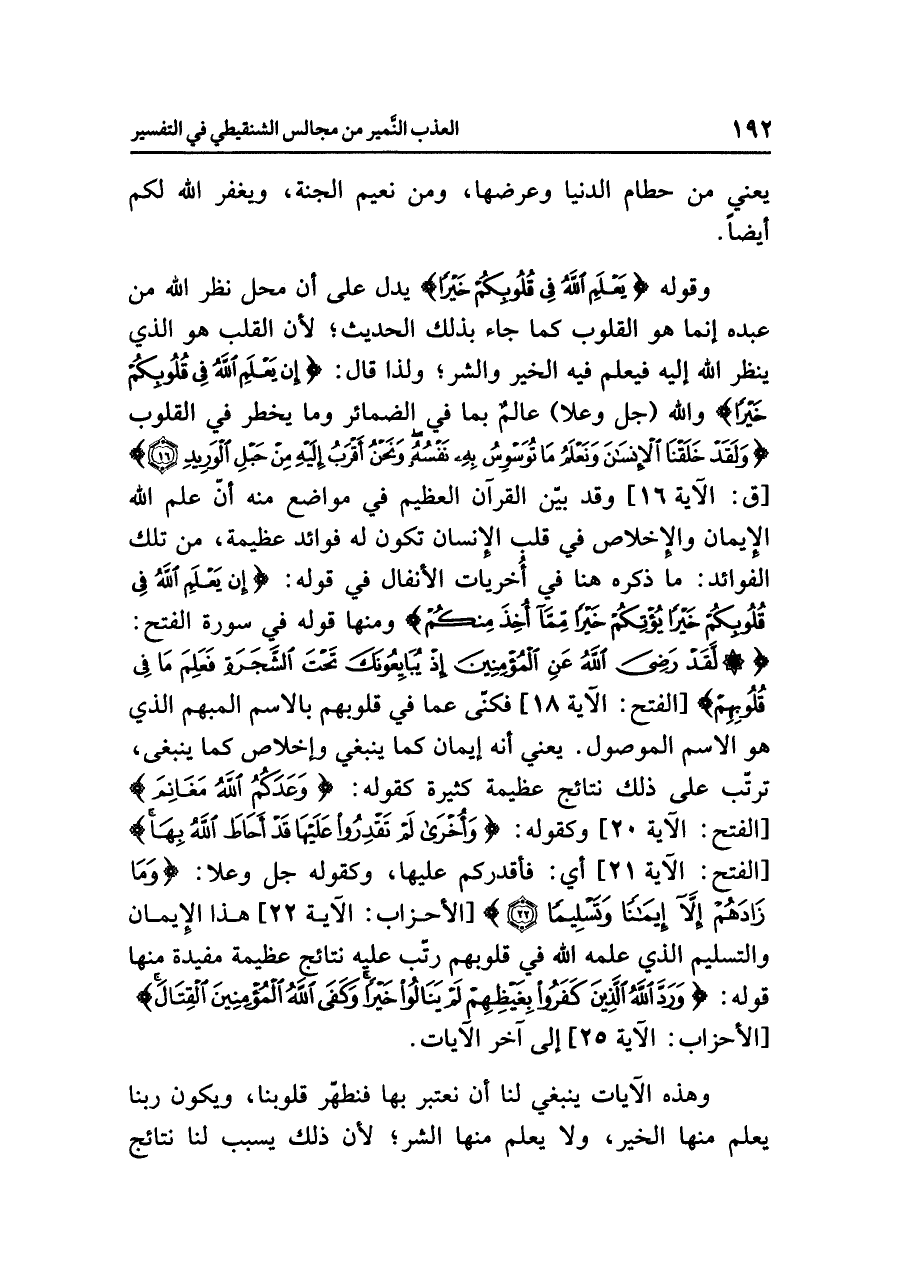 ١٩٢ العذب النَّمير من مجالس الشنقيطي في التفسير
يعني من حطام الدنيا وعرضها، ومن نعيم الجنة، ويغفر الله لكم
أيضاً.
وقوله ﴿يَعْلَمِ ٱللَّهُ فِى قُلُوبِكُمْ خَيْرًا﴾ يدل على أن محل نظر الله من
عبده إنما هو القلوب كما جاء بذلك الحديث؛ لأن القلب هو الذي
ينظر الله إليه فيعلم فيه الخير والشر؛ ولذا قال: ﴿إِن يَعْلَمِ ٱللَّهُ فِى قُلُوبِكُمْ
خَيْرًا﴾ والله (جل وعلا) عالمٌ بما في الضمائر وما يخطر في القلوب
﴿وَلَقَدْ خَلَقْنَا ٱلْإِنسَٰنَ وَنَعْلَمُ مَا تُوَسْوِسُ بِهِۦ نَفْسُهُۥۖ وَنَحْنُ أَقْرَبُ إِلَيْهِ مِنْ حَبْلِ ٱلْوَرِيدِ ١٦﴾
[ق: الآية ١٦] وقد بيّن القرآن العظيم في مواضع منه أنّ علم الله
الإيمان والإخلاص في قلب الإنسان تكون له فوائد عظيمة، من تلك
الفوائد: ما ذكره هنا في أُخريات الأنفال في قوله: ﴿إِن يَعْلَمِ ٱللَّهُ فِى
قُلُوبِكُمْ خَيْرًا يُؤْتِكُمْ خَيْرًا مِّمَّآ أُخِذَ مِنكُمْ﴾ ومنها قوله في سورة الفتح:
﴿۞ لَّقَدْ رَضِىَ ٱللَّهُ عَنِ ٱلْمُؤْمِنِينَ إِذْ يُبَايِعُونَكَ تَحْتَ ٱلشَّجَرَةِ فَعَلِمَ مَا فِى
قُلُوبِهِمْ﴾ [الفتح: الآية ١٨] فكنّى عما في قلوبهم بالاسم المبهم الذي
هو الاسم الموصول. يعني أنه إيمان كما ينبغي وإخلاص كما ينبغي،
ترتّب على ذلك نتائج عظيمة كثيرة كقوله: ﴿وَعَدَكُمُ ٱللَّهُ مَغَانِمَ﴾
[الفتح: الآية ٢٠] وكقوله: ﴿وَأُخْرَىٰ لَمْ تَقْدِرُوا۟ عَلَيْهَا قَدْ أَحَاطَ ٱللَّهُ بِهَاۚ﴾
[الفتح: الآية ٢١] أي: فأقدركم عليها، وكقوله جل وعلا: ﴿وَمَا
زَادَهُمْ إِلَّآ إِيمَٰنًا وَتَسْلِيمًا ٢٢﴾ [الأحزاب: الآية ٢٢] هذا الإيمان
والتسليم الذي علمه الله في قلوبهم رتّب عليه نتائج عظيمة مفيدة منها
قوله: ﴿وَرَدَّ ٱللَّهُ ٱلَّذِينَ كَفَرُوا۟ بِغَيْظِهِمْ لَمْ يَنَالُوا۟ خَيْرًاۚ وَكَفَى ٱللَّهُ ٱلْمُؤْمِنِينَ ٱلْقِتَالَۚ﴾
[الأحزاب: الآية ٢٥] إلى آخر الآيات.
وهذه الآيات ينبغي لنا أن نعتبر بها فنطهّر قلوبنا، ويكون ربنا
يعلم منها الخير، ولا يعلم منها الشر؛ لأن ذلك يسبب لنا نتائج